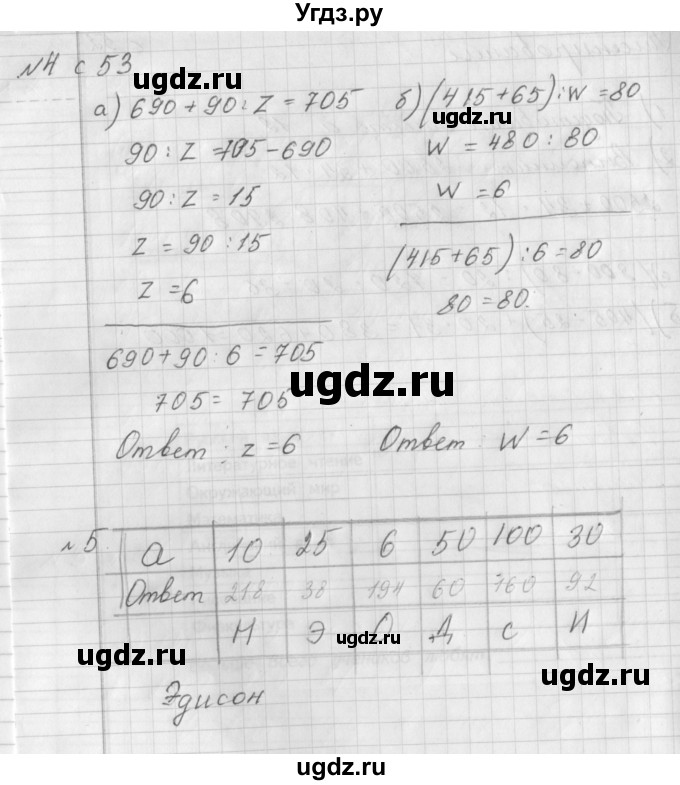 Угдз.ру
№4 с 53
а) 690 + 90 : z = 705
90 : z = 705 - 690
90 : z = 15
z = 90 : 15
z = 6
690 + 90 : 6 = 705
705 = 705
Ответ : z = 6
б) (415 + 65) : w = 80
w = 480 : 80
w = 6
(415 + 65) : 6 = 80
80 = 80.
Ответ : w = 6
№5.
а 10 25 6 50 100 30
Ответ 218 38 194 60 760 92
Н Э О Д С И
Эдисон
ugdz.ru
ugdz.ru
ugdz.ru
ugdz.ru
ugdz.ru
ugdz.ru
ugdz.ru
ugdz.ru
ugdz.ru